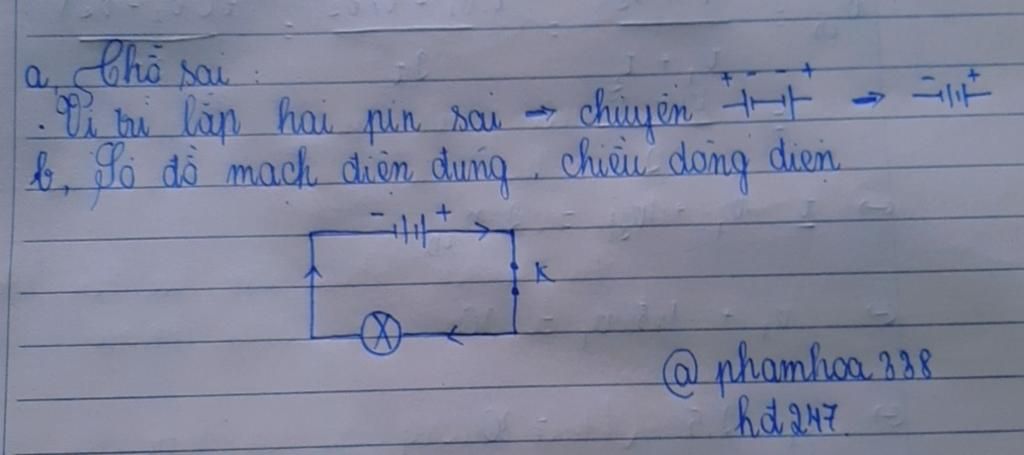 a, Chỗ sai :
. Vị trí lắp hai pin sai → chuyển + - - + → - +
b, Sơ đồ mạch điện đúng, chiều dòng điện
- +
K
@ phamhoa338
hd247